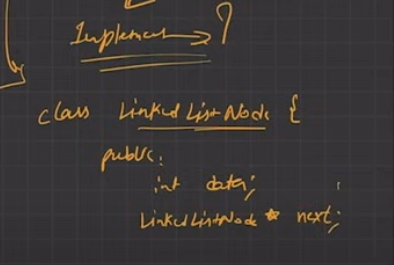 Implement → ?
class LinkedListNode {
public:
int data;
LinkedListNode * next;